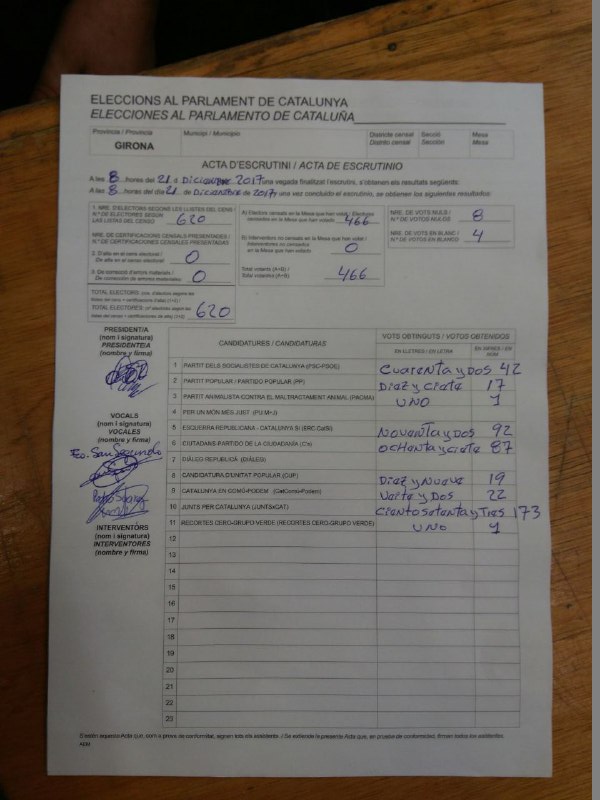 ELECCIONS AL PARLAMENT DE CATALUNYA
ELECCIONES AL PARLAMENTO DE CATALUÑA
Província / Provincia Municipi / Municipio Districte censal Secció Mesa
Distrito censal Sección Mesa
GIRONA
ACTA D'ESCRUTINI / ACTA DE ESCRUTINIO
A les 8 hores del 21 d Diciembre 2017 una vegada finalitzat l'escrutini, s'obtenen els resultats següents:
A las 8 horas del día 21 de Diciembre de 2017 y una vez concluido el escrutinio, se obtienen los siguientes resultados:
1. NRE. D'ELECTORS SEGONS LES LLISTES DEL CENS /
N.º DE ELECTORES SEGÚN
LAS LISTAS DEL CENSO 620
NRE. DE CERTIFICACIONS CENSALS PRESENTADES /
N.º DE CERTIFICACIONES CENSALES PRESENTADAS
2. D'alta en el cens electoral /
De alta en el censo electoral 0
3. De correcció d'errors materials /
De corrección de errores materiales 0
TOTAL ELECTORS
TOTAL ELECTORES 620
A) Electors censats en la Mesa que han votat / Electores
censados en la Mesa que han votado 466
B) Interventors no censats en la Mesa que han votat /
Interventores no censados
en la Mesa que han votado 0
Total votants (A+B) /
Total votantes (A+B) 466
NRE. DE VOTS NULS /
N.º DE VOTOS NULOS 8
NRE. DE VOTS EN BLANC /
N.º DE VOTOS EN BLANCO 4
PRESIDENT/A
(nom i signatura)
PRESIDENTE/A
(nombre y firma)
VOCALS
(nom i signatura)
VOCALES
(nombre y firma)
Fco. San Segundo
INTERVENTORS
(nom i signatura)
INTERVENTORES
(nombre y firma)
CANDIDATURES / CANDIDATURAS VOTS OBTINGUTS / VOTOS OBTENIDOS
EN LLETRES / EN LETRA EN XIFRES / EN NÚM.
1 PARTIT DELS SOCIALISTES DE CATALUNYA (PSC-PSOE) Cuarenta y Dos 42
2 PARTIT POPULAR / PARTIDO POPULAR (PP) Diez y ciete 17
3 PARTIT ANIMALISTA CONTRA EL MALTRACTAMENT ANIMAL (PACMA) UNO 1
4 PER UN MÓN MÉS JUST (PUM+J)
5 ESQUERRA REPUBLICANA - CATALUNYA SÍ (ERC-CatSí) Noventa y dos 92
6 CIUTADANS-PARTIDO DE LA CIUDADANÍA (C's) ochenta y ciete 87
7 DIÀLEG REPUBLICÀ (DIÀLEG)
8 CANDIDATURA D'UNITAT POPULAR (CUP) Diez y Nueve 19
9 CATALUNYA EN COMÚ-PODEM (CatComú-Podem) Veite y Dos 22
10 JUNTS PER CATALUNYA (JUNTSxCAT) Ciento setenta y Tres 173
11 RECORTES CERO-GRUPO VERDE (RECORTES CERO-GRUPO VERDE) UNO 1
12
13
14
15
16
17
18
19
20
21
22
23
S'estén aquesta Acta que, com a prova de conformitat, signen tots els assistents. / Se extiende la presente Acta que, en prueba de conformidad, firman todos los asistentes.